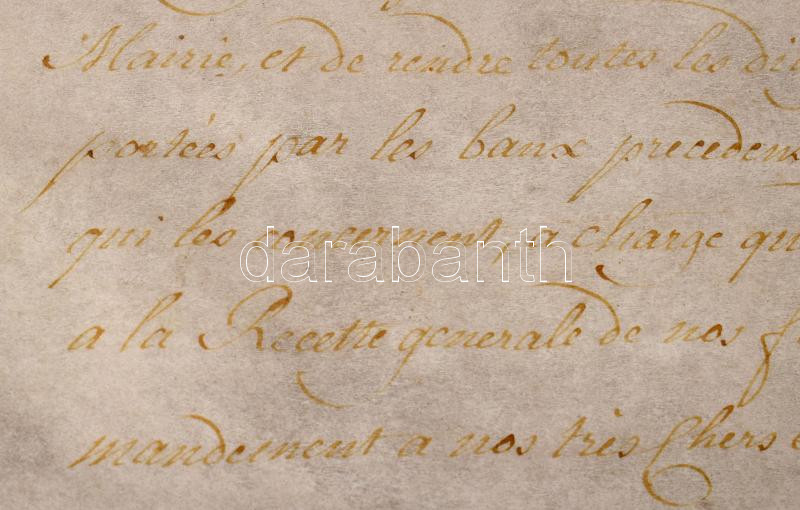 Mairie, et de rendre toutes les di
portées par les baux precedens
qui les concernent, a charge qu
a la Recette generale de nos f
mandement a nos très Chers e
darabanth